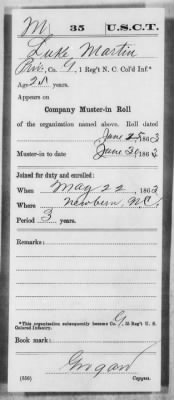 M 35 U.S.C.T.
Luke Martin
Pvt., Co. G, 1 Reg't N. C. Col'd Inf*
Age 28 years.
Appears on
Company Muster-in Roll
of the organization named above. Roll dated
June 25 1863
Muster-in to date June 30 1863
Joined for duty and enrolled:
When May 22, 1863
Where Newbern, N.C.
Period 3 years.
Remarks:
*This organization subsequently became Co. G, 35 Reg't U. S.
Colored Infantry.
Book mark:
(356) Copyist.